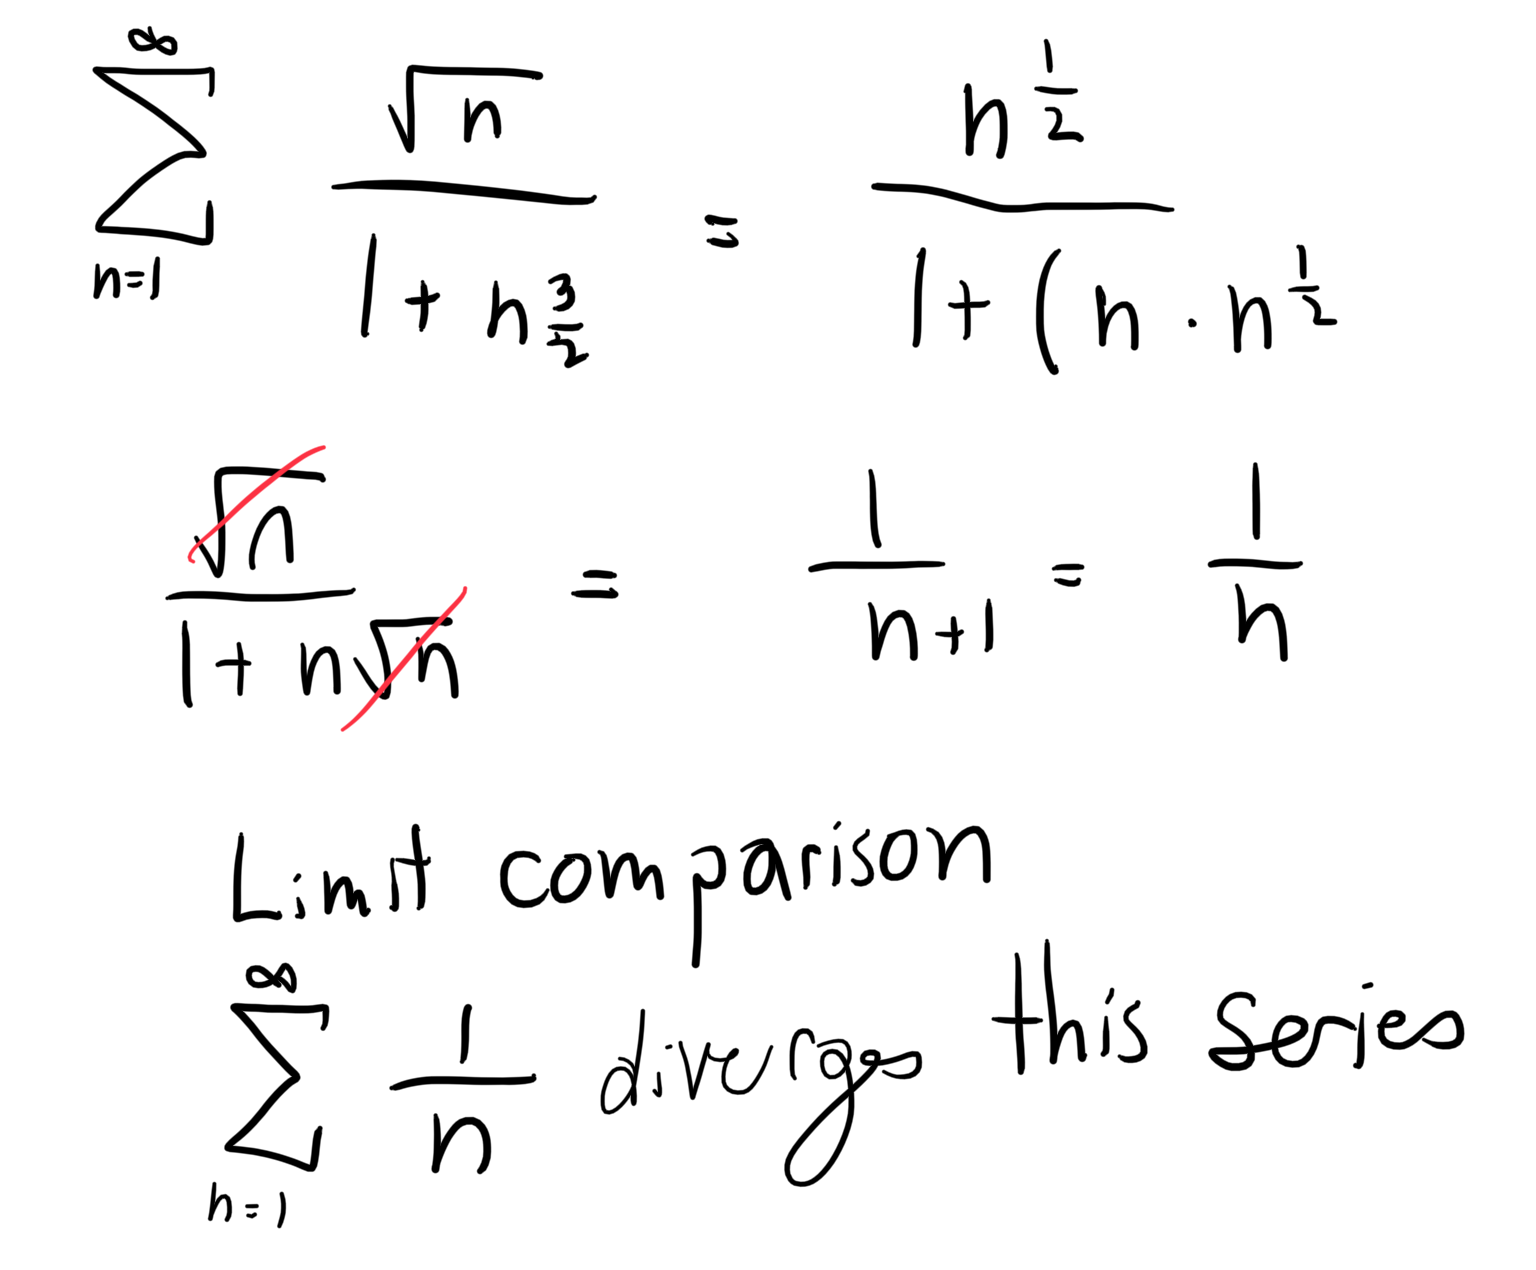 ∞ ∑ n=1 √n / 1 + n^(3/2) = n^(1/2) / 1 + (n · n^(1/2)
√n / 1 + n√n = 1 / n+1 = 1 / n
Limit comparison
∞ ∑ n=1 1 / n diverges this series